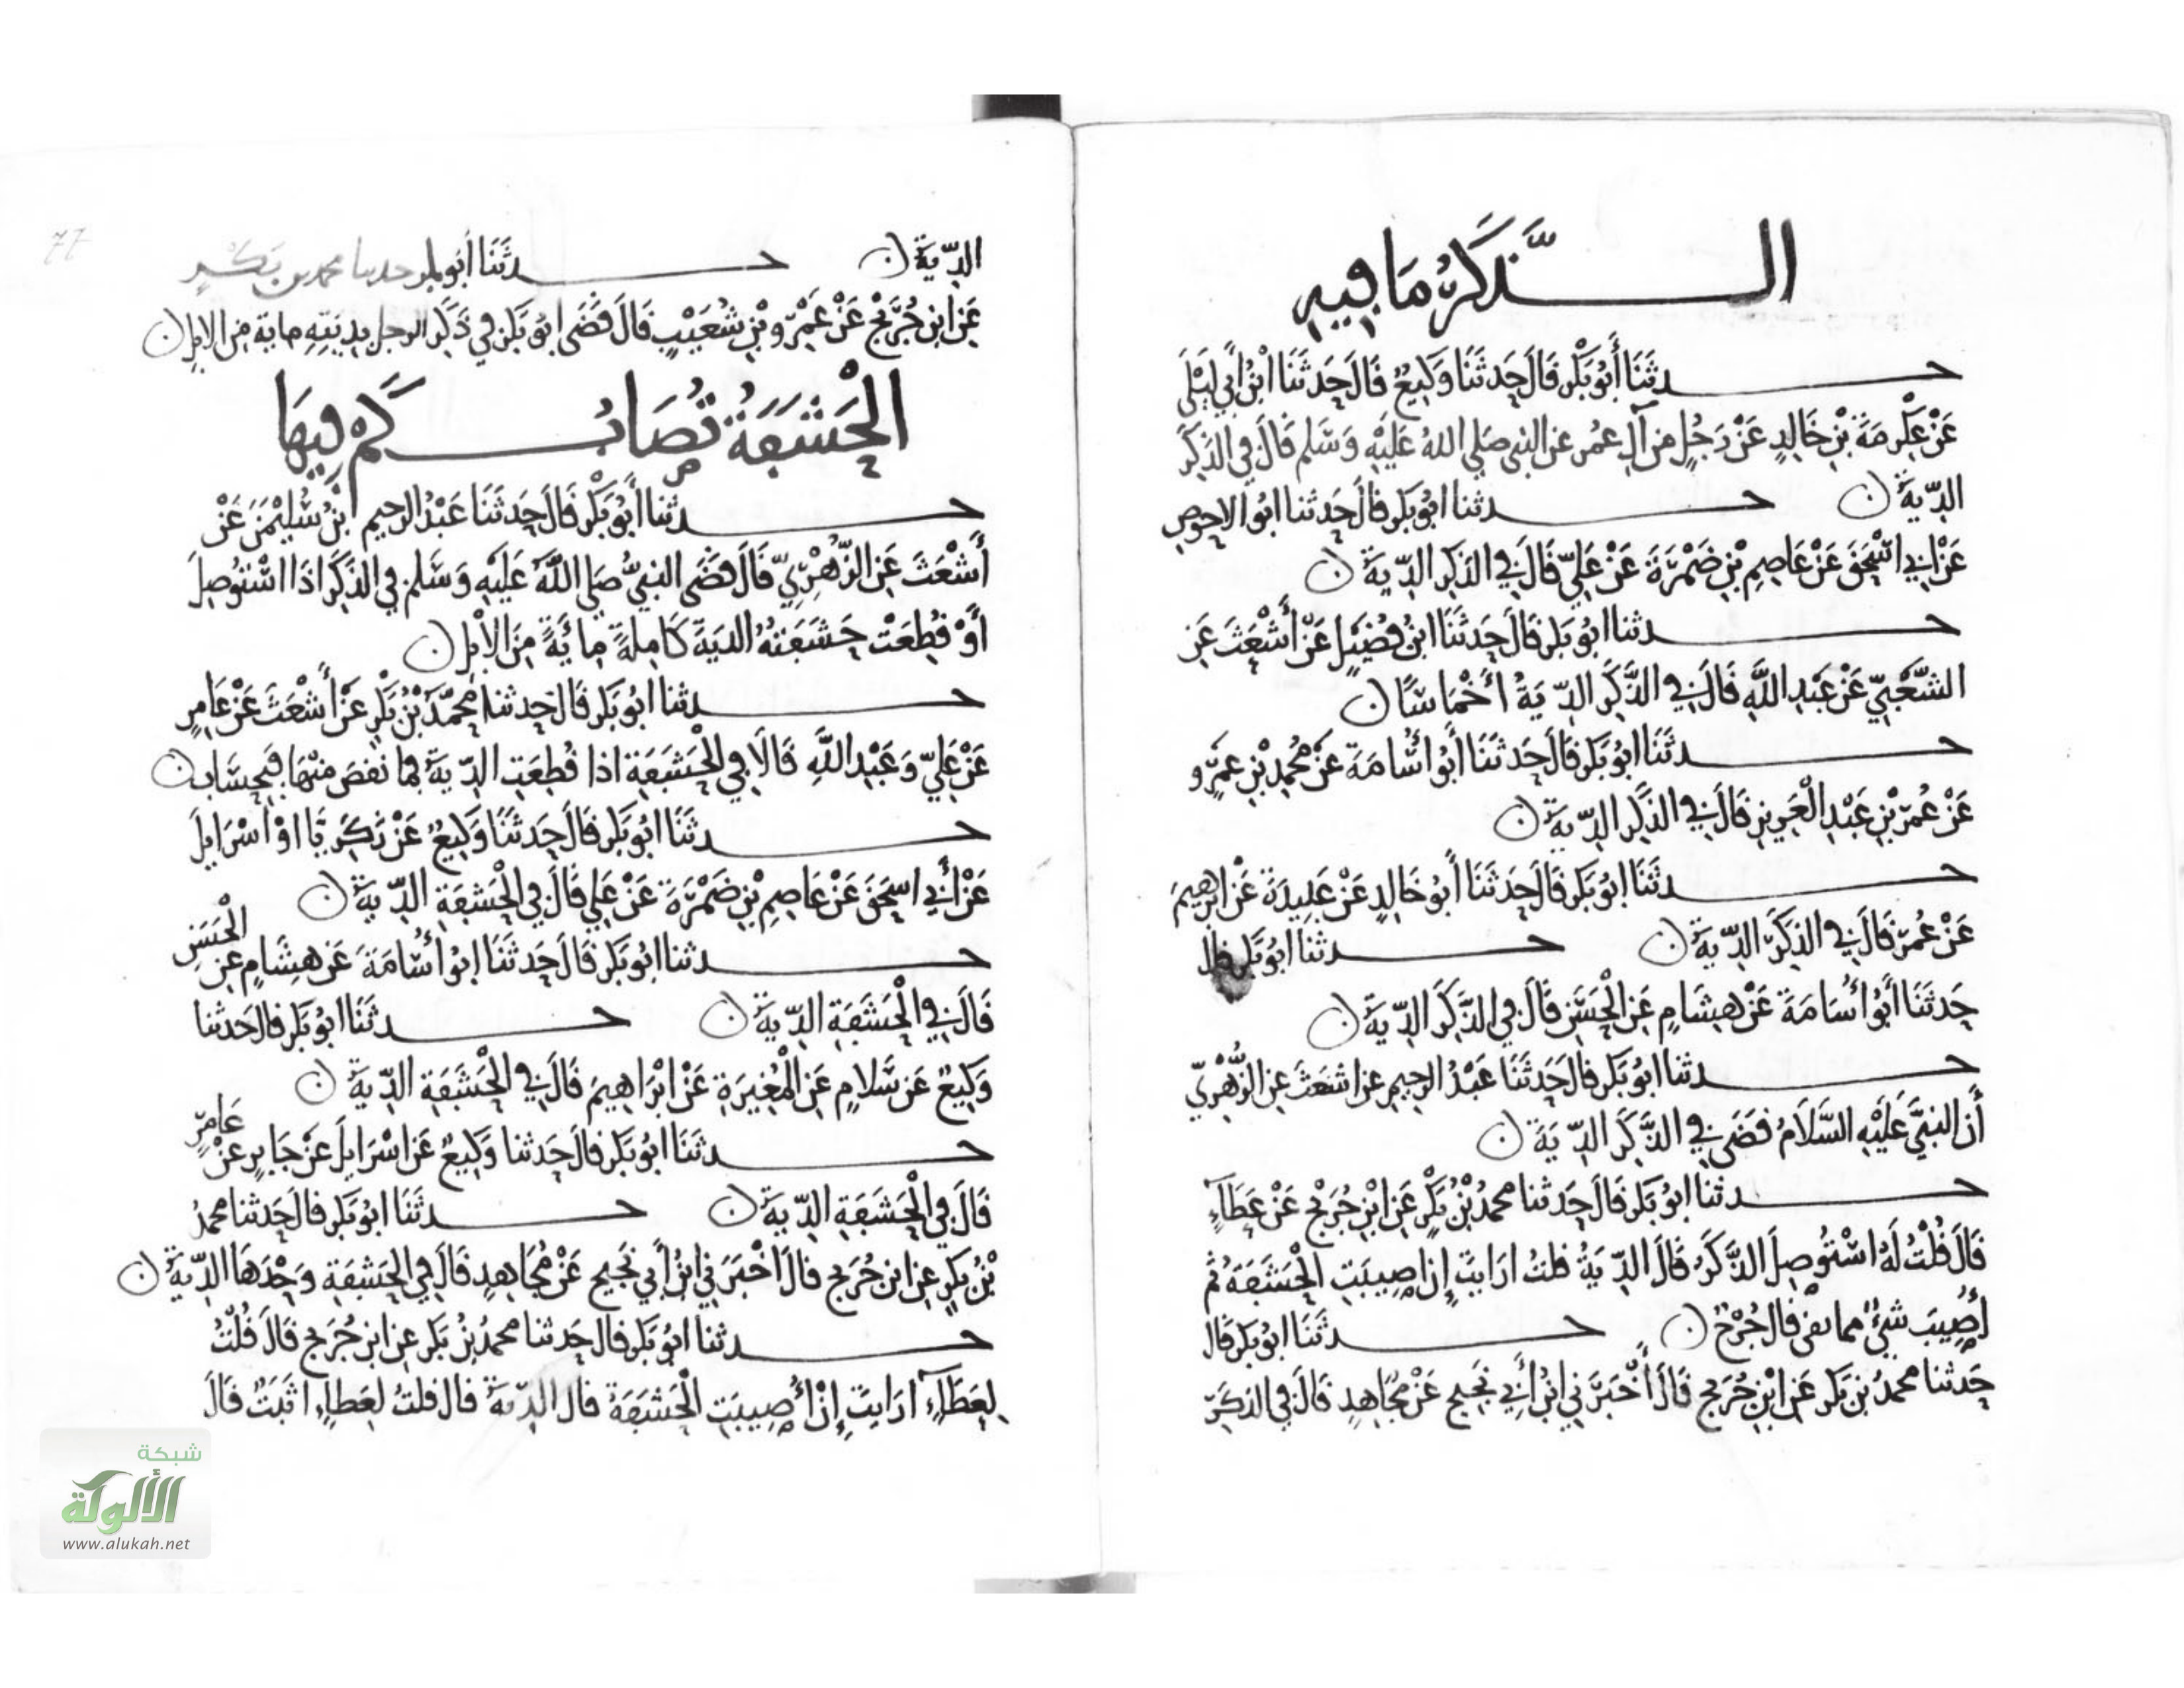 الذَّكَرُ مَا فِيهِ
حدثنا أَبُو بَكْرٍ قَالَ حَدثَنَا وَكِيعٌ قَالَ حَدثَنَا ابْنُ أَبِي لَيْلَى
عَنْ عِكْرِمَةَ بْنِ خَالِدٍ عَنْ رَجُلٍ مِن آلِ عُمَر عن النبي صَلى اللهُ عَلَيْهِ وَسَلم قَالَ فِي الذَّكَرِ
الدِّيَةُ حدثنا ابُو بَكر قَالَ حَدثنا ابُو الاحوصِ
عَنْ ابِي اسْحَقَ عَنْ عَاصِمِ بْنِ ضَمْرَةَ عَنْ عَلِيٍّ قَالَ فِي الذَكَرِ الدِّيَةُ
حدثنا ابُو بَكر قَالَ حَدثَنَا ابنُ فُضَيْلٍ عَنْ أَشْعَثَ عَنِ
الشَّعْبِيِّ عَنْ عَبْدِ اللَّهِ قَالَ فِي الذَّكَرِ الدِّيَةُ أَخْمَاسًا
حدثَنَا ابُو بَكر قَالَ حَدثَنَا أَبُو اسَامَةَ عَنْ مُحَمدِ بْنِ عَمْرٍو
عَنْ عُمَرَ بْنِ عَبْدِ الْعَزِيزِ قَالَ فِي الذَّكَرِ الدِّيَةُ
حدثَنَا ابُو بَكر قَالَ حَدثَنَا أَبُو خَالِدٍ عَنْ عَبِيدَةَ عَنْ ابرهيمَ
عَنْ عُمَرَ قَالَ فِي الذَكَرِ الدِّيَةُ حدثنا ابُو بَكر قال
حَدثَنَا أَبُو أُسَامَةَ عَنْ هِشَامٍ عَنِ الْحَسَنِ قَالَ فِي الذَّكَرِ الدِّيَةُ
حدثنا ابُو بَكر قَالَ حَدثَنَا عَبْدُ الرحِيمِ عن اشعَثَ عنِ الزُّهْرِيِّ
أَن النبيَّ عَلَيْهِ السَّلَامُ قضَى فِي الذَّكَرِ الدِّيَةَ
حدثنا ابُو بَكر قَالَ حَدثنا محمدُ بْنُ بَكْرٍ عَنِ ابْنِ جُرَيْجٍ عَنْ عَطَاءٍ
قَالَ قُلْتُ لَهُ اسْتُوصِلَ الذَّكَرُ قَالَ الدِّيَةُ قلتُ ارَايتَ إِن اصِيبَتِ الْحَشَفَةُ ثم
أُصِيبَ شيءٌ مما بقي قَال جُرْحٌ حدثَنَا ابُو بَكر قَال
حَدثنا محمدُ بن بَكر عَنِ ابْنِ جُرَيج قَالَ أَخْبَرَنِي ابْنُ أَبِي نَجِيحٍ عَنْ مُجَاهِدٍ قَالَ فِي الذَكَرِ
الدِّيَةُ حدثَنَا أَبُو بكر حدثنا محمد بن بَكْرٍ
عَنِ ابن جُرَيْجٍ عَنْ عَمْرِو بْنِ شُعَيْبٍ قَالَ قَضَى ابُو بَكرٍ فِي ذَكَرِ الرجل بِدِيَتِهِ مايَة مِنَ الابِلِ
الْحَشَفَةُ تُصَابُ كَمْ فِيهَا
حدثنا أَبُو بَكْرٍ قَالَ حَدثَنَا عَبْدُ الرحِيمِ ابْنُ سُلَيْمَنَ عَنْ
أَشْعَثَ عَنِ الزُّهْرِيِّ قَالَ قَضَى النبيُّ صَلى اللَّهُ عَلَيْهِ وَسَلم فِي الذَّكَرِ اذَا اسْتُوصِلَ
أَوْ قُطِعَتْ حَشَفَتُهُ الديَةَ كَامِلةً مِائَةً مِنَ الْابِلِ
حدثنا ابُو بَكر قَالَ حَدثنا مُحمَّدُ بْنُ بَكْرٍ عَنْ أَشْعَثَ عَنْ عَامِرٍ
عَنْ عَلِيٍّ وَعَبْدِ اللَّهِ قَالَا فِي الْحَشَفَةِ اذا قُطِعَتِ الدِّيَةُ فما نقصَ مِنْهَا فبِحِسَابٍ
حدثَنَا ابُو بَكر قَالَ حَدثَنَا وَكِيعٌ عَنْ زَكَرِيَّا اوْ اسْرَايلَ
عَنْ أَبِي اسحَقَ عَنْ عَاصِمِ بْنِ ضَمْرَةَ عَنْ عَلِي قَالَ فِي الْحَشفَةِ الدِّيَةُ
حدثنا ابُو بَكر قَالَ حَدثَنَا ابُو أُسَامَةَ عَن هِشَامٍ عَنِ الْحَسَنِ
قَالَ فِي الْحَشَفَةِ الدِّيَةُ حدثَنَا ابُو بَكر قَال حَدثنا
وَكِيعٌ عَن سَلامٍ عَنِ الْمُغِيرَةِ عَنْ ابْرَاهِيمَ قَالَ فِي الْحَشَفَةِ الدِّيَةُ
حدثَنَا ابُو بَكر قَالَ حَدثنا وَكِيعٌ عَن اسْرَايلَ عَنْ جَابِرٍ عَنْ عَامِرٍ
قَالَ فِي الْحَشَفَةِ الدِّيَةُ حدثَنَا ابُو بَكر قَالَ حَدثنا محمدُ
بْنُ بَكرٍ عنِ ابنِ جُرَيج قَالَ اخْبَرَنِي ابْنُ أَبِي نَجِيحٍ عَنْ مُجَاهِدٍ قَالَ فِي الحَشفَةِ وَحْدَهَا الدِّيَةُ
حدثنا ابُو بَكر قَال حَدثنا محمدُ بْنُ بَكر عنِ ابن جُرَيج قَالَ قُلْتُ
لِعَطَاءٍ ارَايتَ إِنْ أُصِيبَتِ الْحَشفَةُ قال الدِّيَةُ قال قلتُ لعَطاءٍ اثَبَتٌ قَالَ
77
شبكة
الألوكة
www.alukah.net